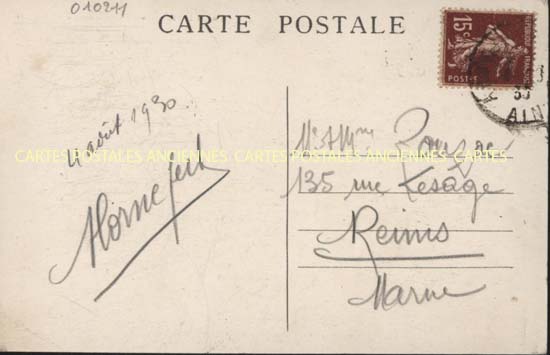 010211
CARTE POSTALE
15c
REPUBLIQUE FRANÇAISE
POSTES
AIN
4 août 1930
Mr & Mme
CARTES POSTALES ANCIENNES CARTES POSTALES ANCIENNES CARTES POSTALES ANCIENNES
135 rue Lesage
Reims
Marne